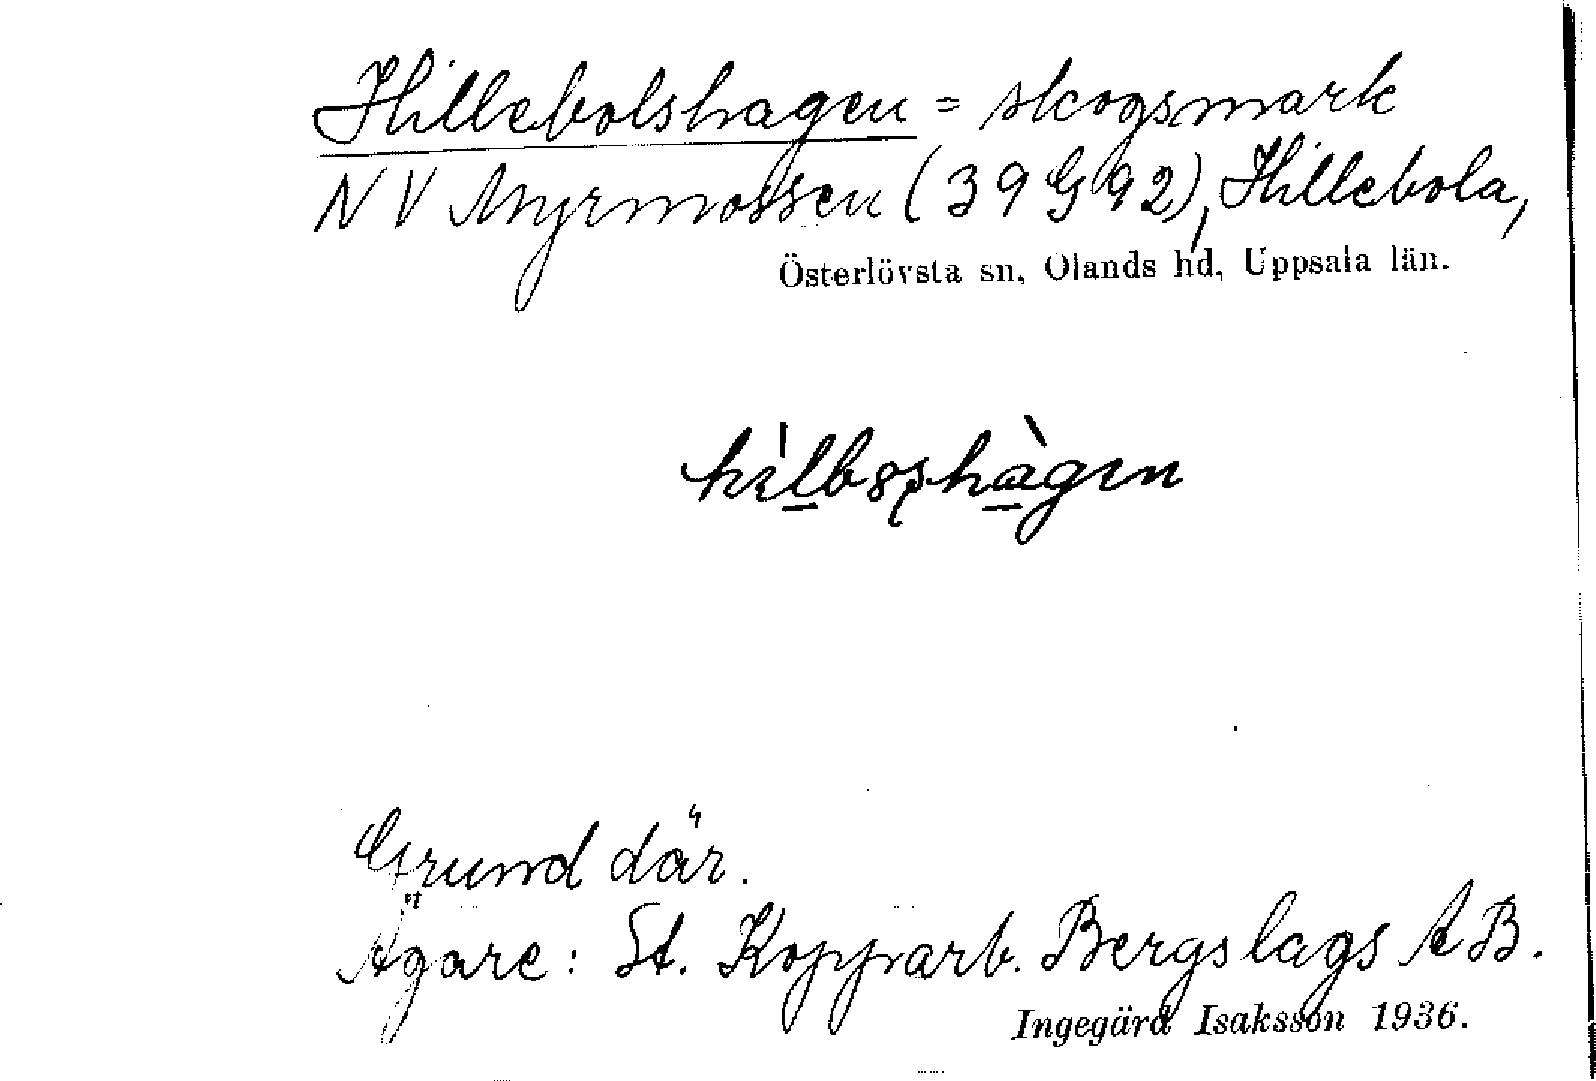 Hillebolshagen = skogsmark
NV Myrmossen (39 G 92), Hillebola,
Österlövsta sn, Olands hd, Uppsala län.
Grund där.
Ägare: St. Kopparb. Bergslags AB.
Ingegärd Isaksson 1936.